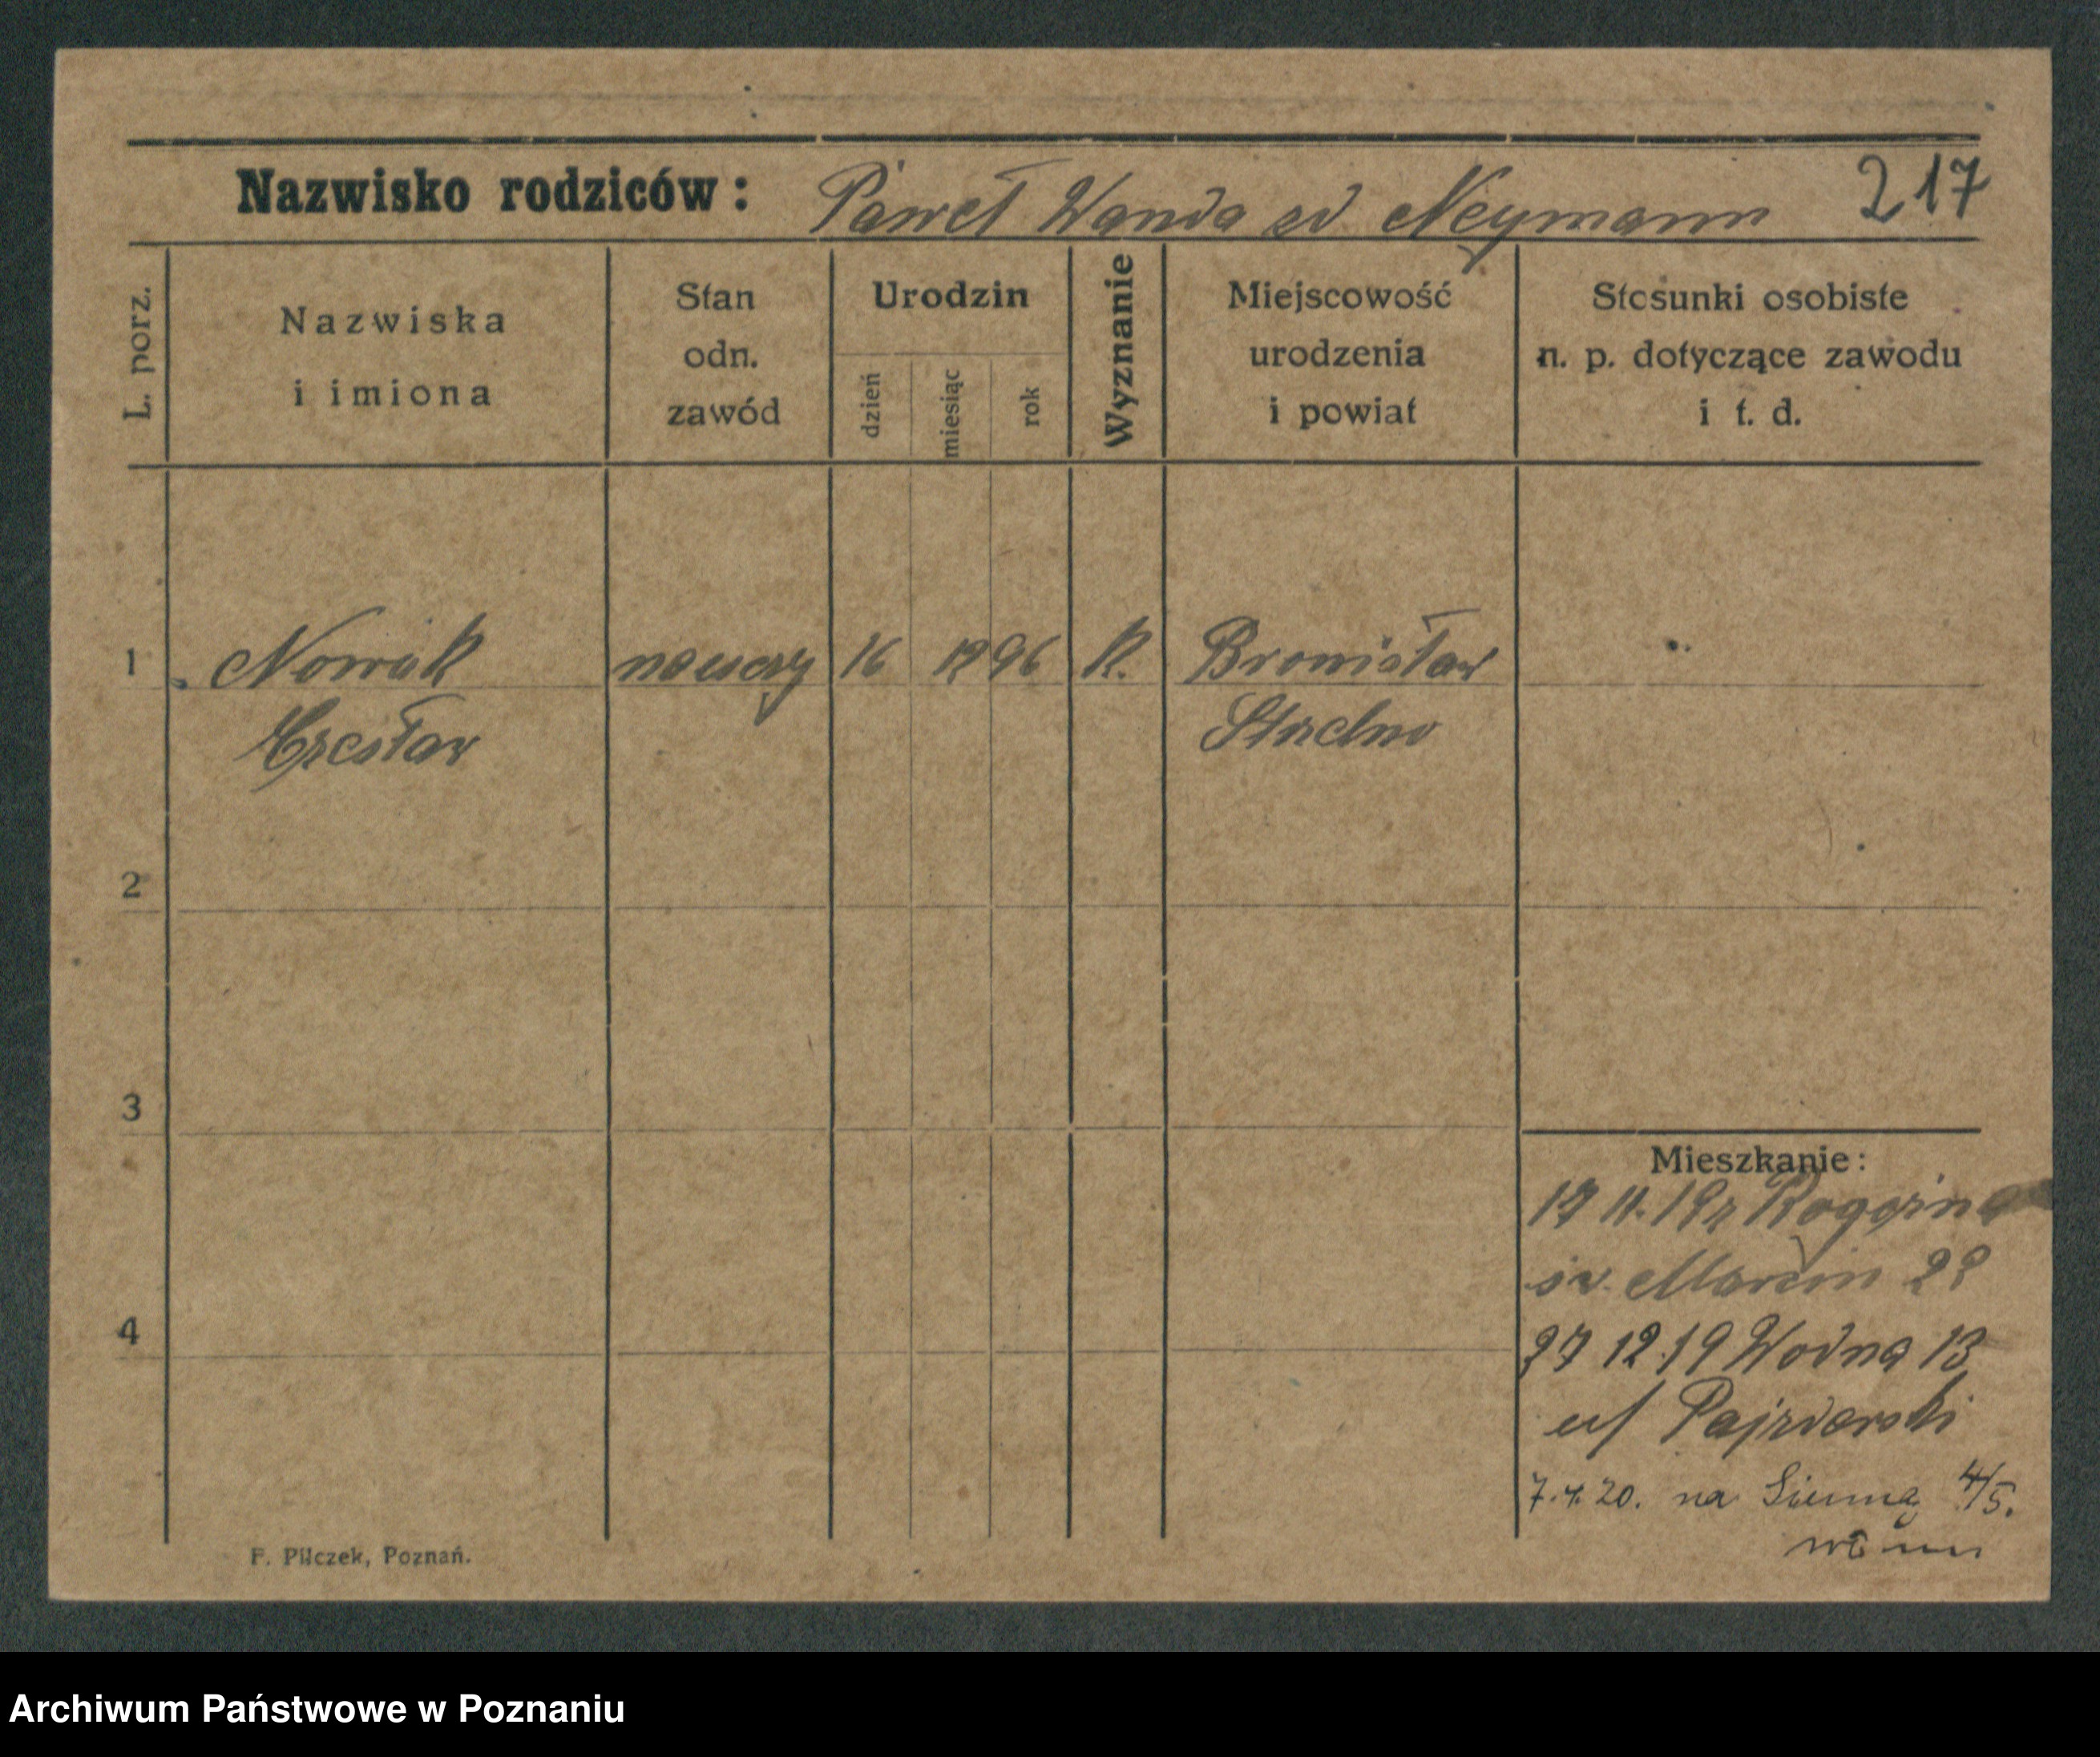 217
Nazwisko rodziców: Paweł Wanda zd Neymann
L. porz.
Nazwiska
i imiona
Stan
odn.
zawód
Urodzin
dzień
miesiąc
rok
Wyznanie
Miejscowość
urodzenia
i powiat
Stosunki osobiste
n. p. dotyczące zawodu
i t. d.
1 Nowak 16 12 96 K. Bronisław
Czesław Strzelno
2
3
Mieszkanie:
17 11. 19 z Rogoźna
św. Marcin
4
27 12.19 Wodna 13
u/ Pajzderski
7.4.20. na Sienną 4/5.
F. Pilczek, Poznań.
Archiwum Państwowe w Poznaniu